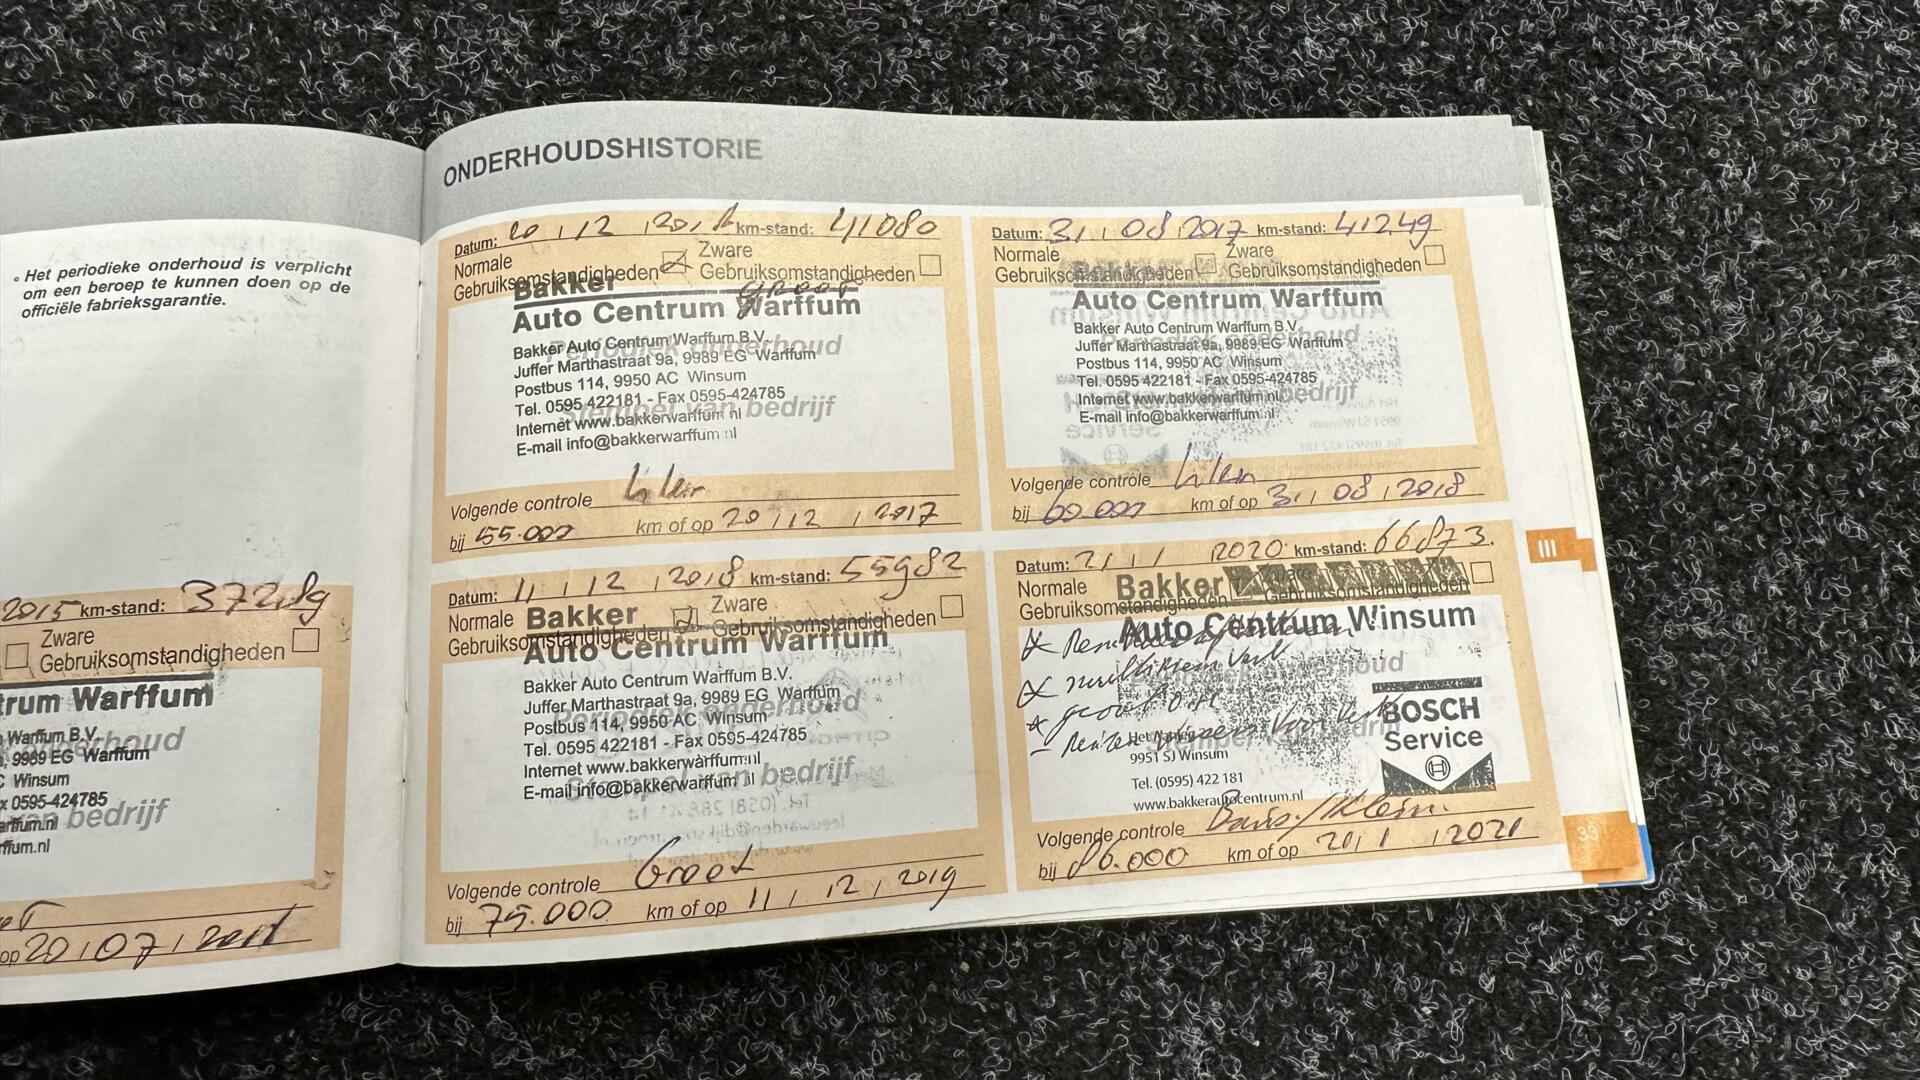 ° Het periodieke onderhoud is verplicht
om een beroep te kunnen doen op de
officiële fabrieksgarantie.
2015 km-stand: 37289
Zware
Gebruiksomstandigheden
trum Warffum
Warffum B.V.
, 9989 EG Warffum
C Winsum
x 0595-424785
arffum.nl
rffum.nl
onderhoud
an bedrijf
op 20 / 07 /
ONDERHOUDSHISTORIE
Datum: 20 / 12 / km-stand: 41080
Normale
Gebruiksomstandigheden
Zware
Gebruiksomstandigheden
Bakker
Groot
Auto Centrum Warffum
Bakker Auto Centrum Warffum B.V.
Juffer Marthastraat 9a, 9989 EG Warffum
Postbus 114, 9950 AC Winsum
Tel. 0595 422181 - Fax 0595-424785
Internet www.bakkerwarffum nl
E-mail info@bakkerwarffum nl
Periodiek onderhoud
Stempel van bedrijf
Volgende controle Klein
bij 55.000 km of op 20 / 12 / 2017
Datum: 31 / 08 2017 km-stand: 41249
Normale
Gebruiksomstandigheden
Zware
Gebruiksomstandigheden
Bakker
Auto Centrum Warffum
Bakker Auto Centrum Warffum B.V.
Juffer Marthastraat 9a, 9989 EG Warffum
Postbus 114, 9950 AC Winsum
Tel. 0595 422181 - Fax 0595-424785
Internet www.bakkerwarffum.nl
E-mail info@bakkerwarffum.nl
Volgende controle Klein
bij 60.000 km of op 31 / 08 / 2018
Datum: 11 / 12 / 2018 km-stand: 55982
Normale
Gebruiksomstandigheden
Zware
Gebruiksomstandigheden
Bakker
Auto Centrum Warffum
Bakker Auto Centrum Warffum B.V.
Juffer Marthastraat 9a, 9989 EG Warffum
Postbus 114, 9950 AC Winsum
Tel. 0595 422181 - Fax 0595-424785
Internet www.bakkerwarffum.nl
E-mail info@bakkerwarffum nl
Periodiek onderhoud
Stempel van bedrijf
Volgende controle Groot
bij 75.000 km of op 11 / 12 / 2019
Datum: 21 / 1 2020 km-stand: 66873.
Normale
Gebruiksomstandigheden
Zware
Gebruiksomstandigheden
Bakker
Auto Centrum Winsum
BOSCH
Service
9951 SJ Winsum
Tel. (0595) 422 181
www.bakkerautocentrum.nl
Volgende controle
bij 86.000 km of op 20 / 1 / 2021
III
39